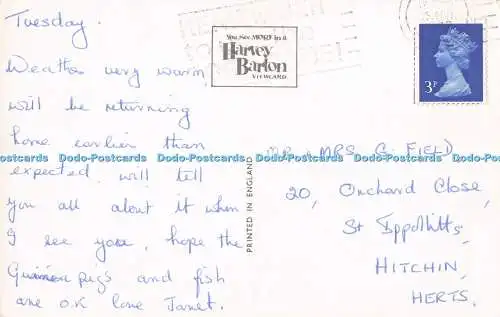 Tuesday.
Weather very warm,
will be returning
home earlier than
expected, will tell
you all about it when
I see you, hope the
Guinea pigs and fish
are O.K love Janet.
You See MORE in a
Harvey
Barton
VIEWCARD
3P
PRINTED IN ENGLAND
MR & MRS G. FIELD
20, Orchard Close,
St Ippollitts,
HITCHIN,
HERTS.
Dodo-Postcards Dodo-Postcards Dodo-Postcards Dodo-Postcards Dodo-Postcards Dodo-Postcards